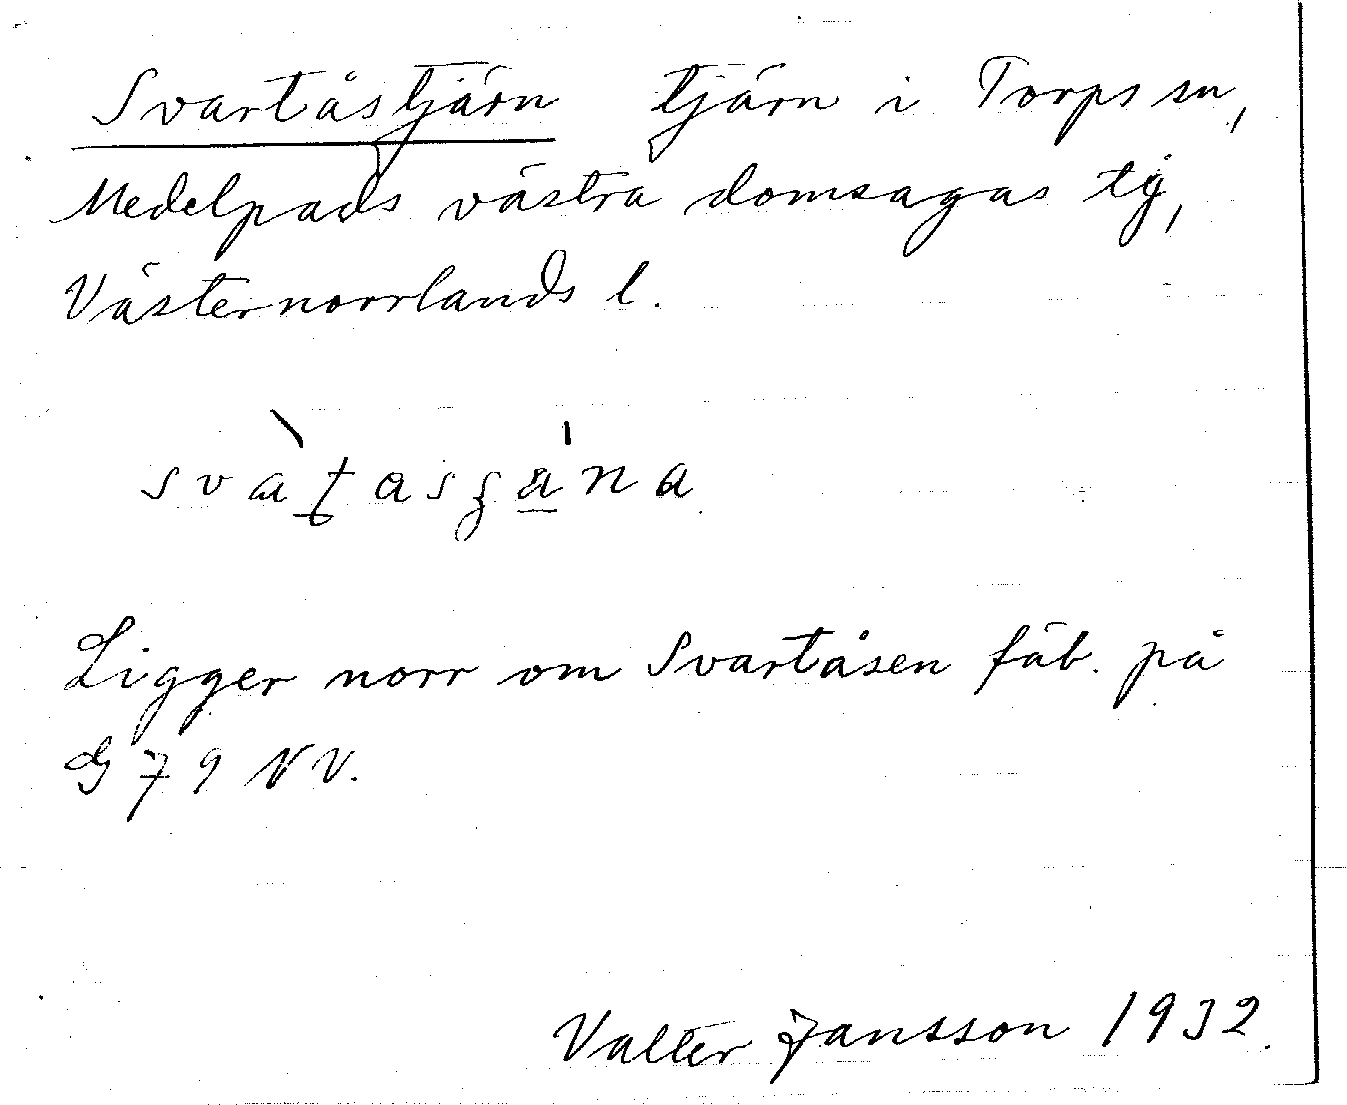 Svartåstjärn tjärn i Torps sn,
Medelpads västra domsagas tg,
Västernorrlands l.
Ligger norr om Svartåsen fäb. på
G 79 NV.
Valter Jansson 1932.